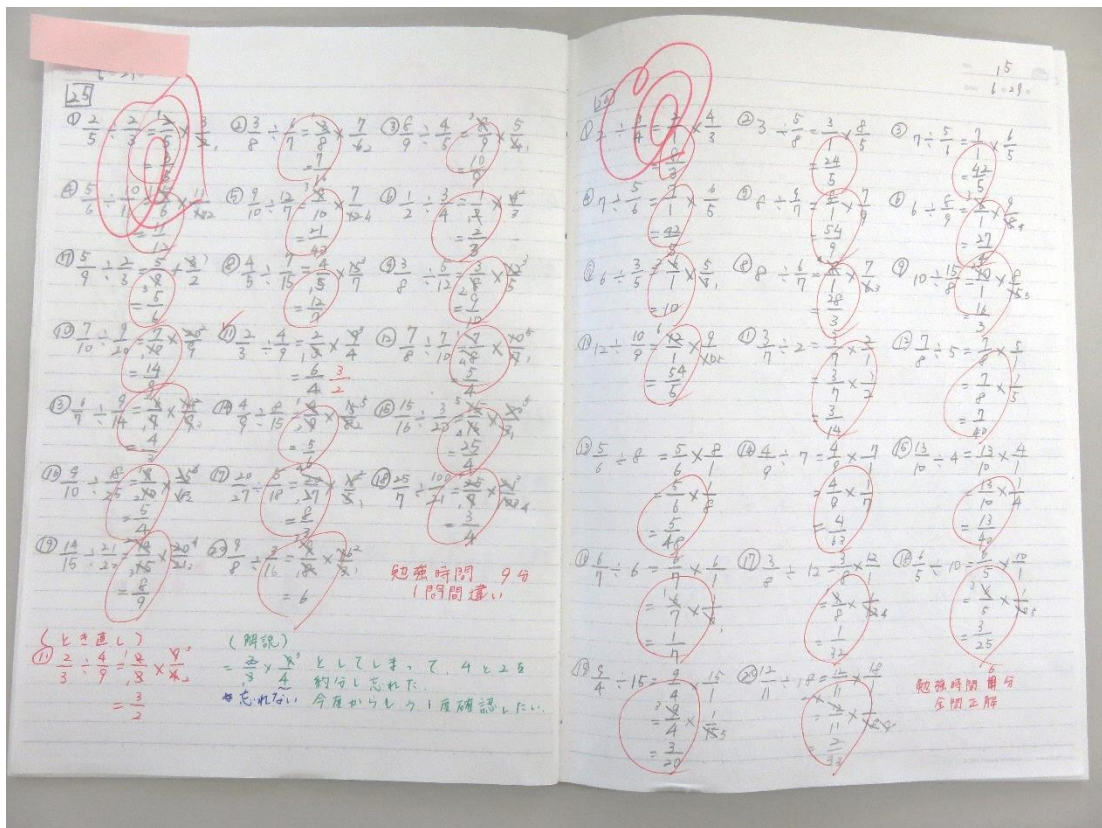 6 . 29 .
25
① 2/5 ÷ 2/3 = 2/5 × 3/2
= 3/5
② 3/8 ÷ 6/7 = 3/8 × 7/6 2
= 7/16
③ 8/9 ÷ 4/5 = 8/9 × 5/4 1
= 10/9
④ 5/6 ÷ 10/11 = 5/6 × 11/10 2
= 11/12
⑤ 9/10 ÷ 12/7 = 9/10 × 7/12 4
= 21/40
⑥ 1/2 ÷ 3/4 = 1/2 × 4/3
= 2/3
⑦ 5/9 ÷ 2/3 = 5/9 × 3/2
= 5/6
⑧ 4/5 ÷ 7/15 = 4/5 × 15/7
= 12/7
⑨ 3/8 ÷ 5/12 = 3/8 × 12/5
= 9/10
⑩ 7/10 ÷ 9/20 = 7/10 × 20/9
= 14/9
⑪ 2/3 ÷ 4/9 = 2/3 × 9/4
= 6/4 3/2
⑫ 7/8 ÷ 7/10 = 7/8 × 10/7
= 5/4
⑬ 6/7 ÷ 9/14 = 6/7 × 14/9
= 4/3
⑭ 4/9 ÷ 8/15 = 4/9 × 15/8 2
= 5/6
⑮ 15/16 ÷ 3/20 = 15/16 × 20/3
= 25/4
⑯ 9/10 ÷ 18/25 = 9/10 × 25/18
= 5/4
⑰ 20/27 ÷ 5/18 = 20/27 × 18/5
= 8/3
⑱ 25/7 ÷ 100/21 = 25/7 × 21/100 4
= 3/4
⑲ 14/15 ÷ 21/20 = 14/15 × 20/21
= 8/9
⑳ 9/8 ÷ 3/16 = 9/8 × 16/3
= 6
勉強時間 9分
1問間違い
(とき直し)
⑪ 2/3 ÷ 4/9 = 2/3 × 9/4 2
= 3/2
(解説)
= 2/3 × 9/4 としてしまって、4と2を
約分し忘れた。
忘れない 今度からもう1度確認したい.
15
6 . 29 .
26
① 2 ÷ 3/4 = 2/1 × 4/3
= 8/3
② 3 ÷ 5/8 = 3/1 × 8/5
= 24/5
③ 7 ÷ 5/6 = 7/1 × 6/5
= 42/5
④ 7 ÷ 5/6 = 7/1 × 6/5
= 42/5
⑤ 8 ÷ 9/7 = 8/1 × 7/9
= 54/9
⑥ 6 ÷ 8/9 = 6/1 × 9/8 4
= 27/4
⑦ 6 ÷ 3/5 = 6/1 × 5/3 1
= 10
⑧ 8 ÷ 6/7 = 8/1 × 7/6 3
= 28/3
⑨ 10 ÷ 15/8 = 10/1 × 8/15 3
= 16/3
⑩ 12 ÷ 10/9 = 12/1 × 9/10 5
= 54/5
⑪ 3/7 ÷ 2 = 3/7 ÷ 2/1
= 3/7 × 1/2
= 3/14
⑫ 7/8 ÷ 5 = 7/8 ÷ 5/1
= 7/8 × 1/5
= 7/40
⑬ 5/6 ÷ 8 = 5/6 × 8/1
= 5/6 × 1/8
= 5/48
⑭ 4/9 ÷ 7 = 4/9 × 7/1
= 4/9 × 1/7
= 4/63
⑮ 13/10 ÷ 4 = 13/10 × 4/1
= 13/10 × 1/4
= 13/40
⑯ 6/7 ÷ 6 = 6/7 × 6/1
= 6/7 × 1/6
= 1/7
⑰ 3/8 ÷ 12 = 3/8 × 12/1
= 3/8 × 1/12 4
= 1/32
⑱ 6/5 ÷ 10 = 6/5 × 10/1
= 6/5 × 1/10 5
= 3/25
⑲ 9/4 ÷ 15 = 9/4 × 15/1
= 9/4 × 1/15 5
= 3/20
⑳ 12/11 ÷ 18 = 12/11 × 18/1
= 12/11 × 1/18
= 2/33
勉強時間 6分
全問正解